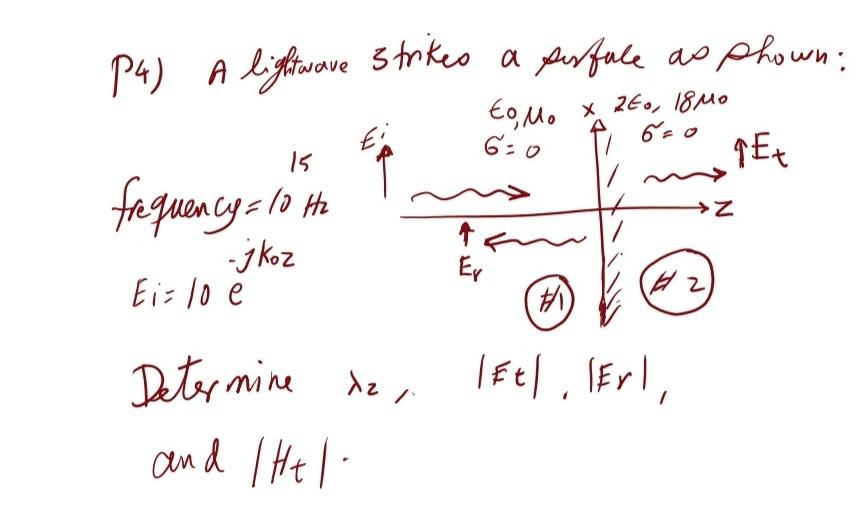 P4) A lightwave strikes a surface as shown:
ϵ0, μ0 x 2ϵ0, 18μ0
Ei σ=0 σ=0 Et
frequency = 10^15 Hz
z
Er
Ei = 10 e^-jk0z
#1 #2
Determine λ2, |Et|, |Er|,
and |Ht|.